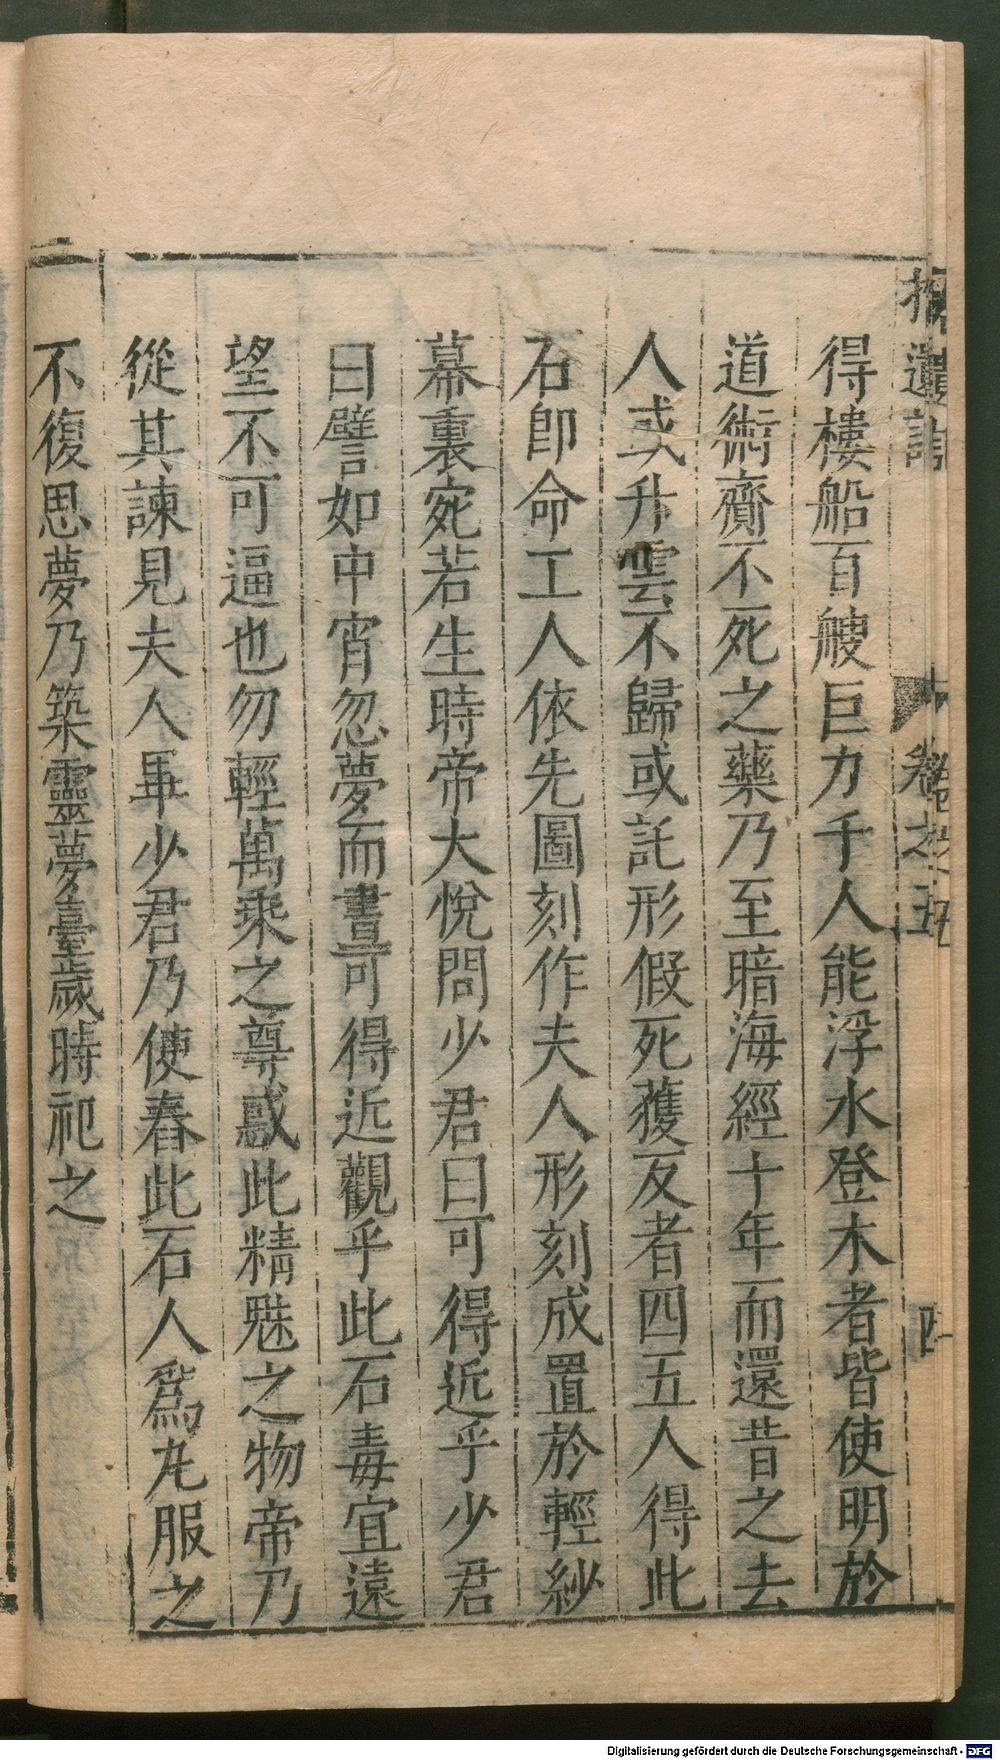 拾遺記 卷之五 四
得樓船百艘巨力千人能浮水登木者皆使明於
道術齎不死之藥乃至暗海經十年而還昔之去
人或升雲不歸或託形假死獲反者四五人得此
石卽命工人依先圖刻作夫人形刻成置於輕紗
幕裏宛若生時帝大悅問少君曰可得近乎少君
曰譬如中宵忽夢而晝可得近觀乎此石毒宜遠
望不可逼也勿輕萬乘之尊惑此精魅之物帝乃
從其諫見夫人畢少君乃使舂此石人爲丸服之
不復思夢乃築靈夢臺歲時祀之
Digitalisierung gefördert durch die Deutsche Forschungsgemeinschaft - DFG